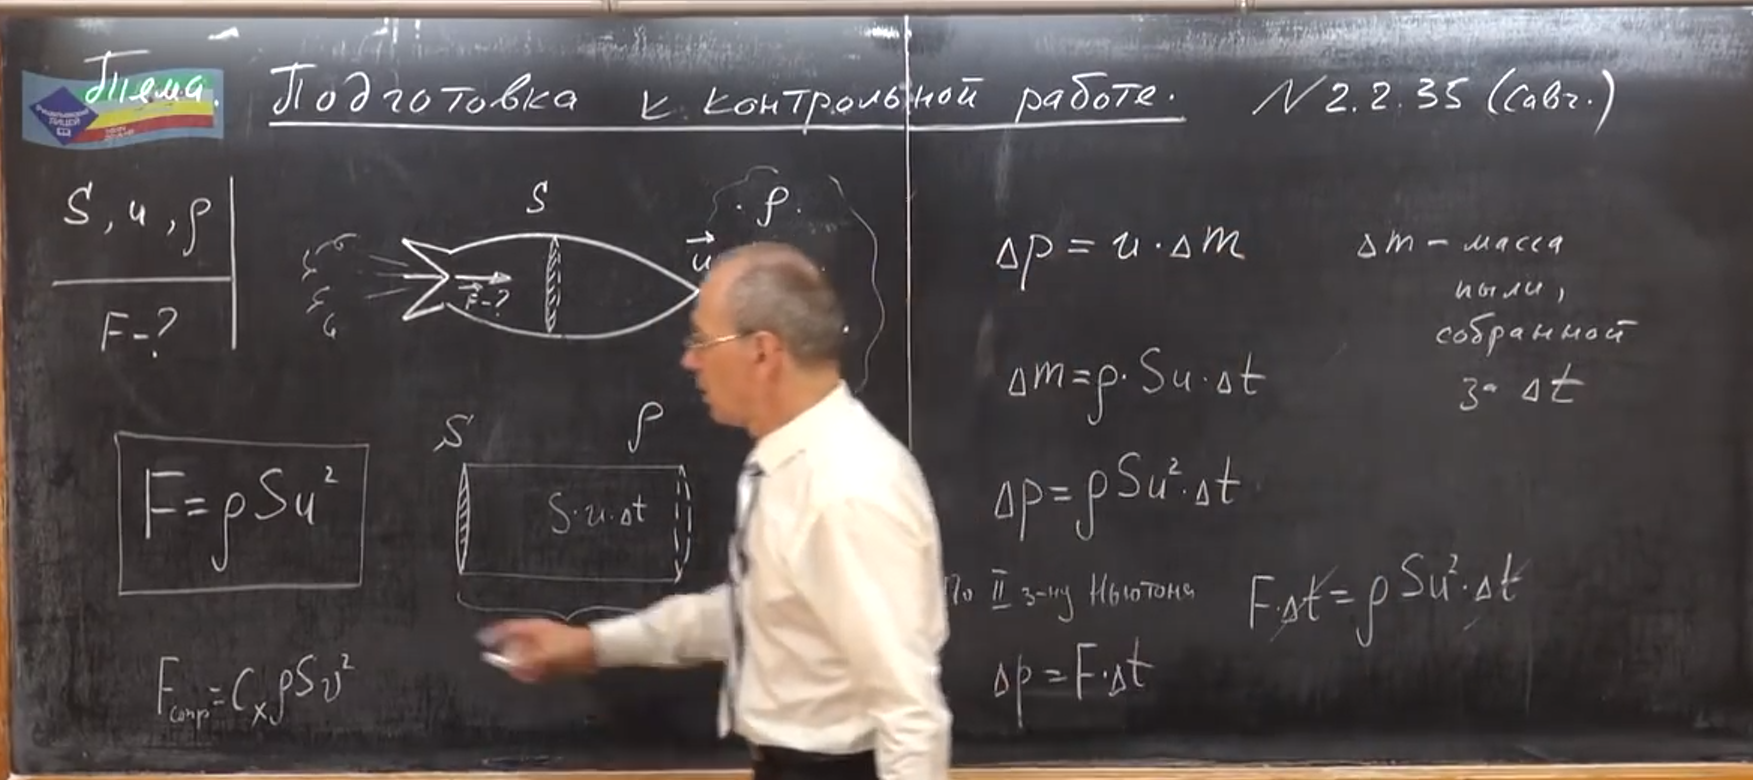 Тема. Подготовка к контрольной работе. N 2.2.35 (Савч.)
S, u, ρ
F-?
S
F-?
u
ρ
F = ρSu²
S
ρ
S·u·Δt
Fсопр = CₓρSv²
Δp = u·Δm
Δm – масса
пыли,
собранной
за Δt
Δm = ρ·Su·Δt
Δp = ρSu²·Δt
По II з-ну Ньютона
F·Δt = ρSu²·Δt
Δp = F·Δt